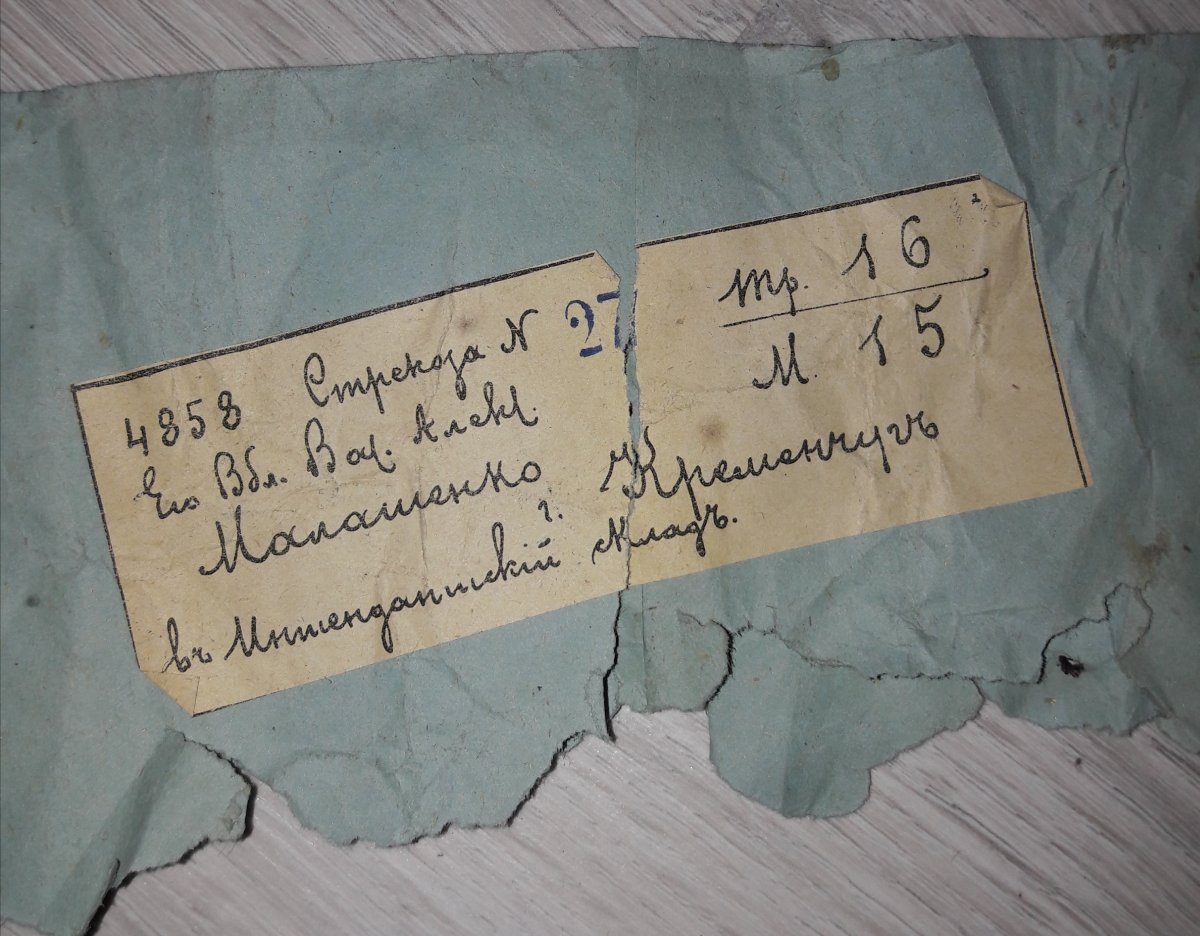 4858 Стрекоза N 27
тр. 16
М. 15
Его Вбл. Вас. Алекс.
Малашенко
г. Кременчугъ
въ Интендантскій складъ.